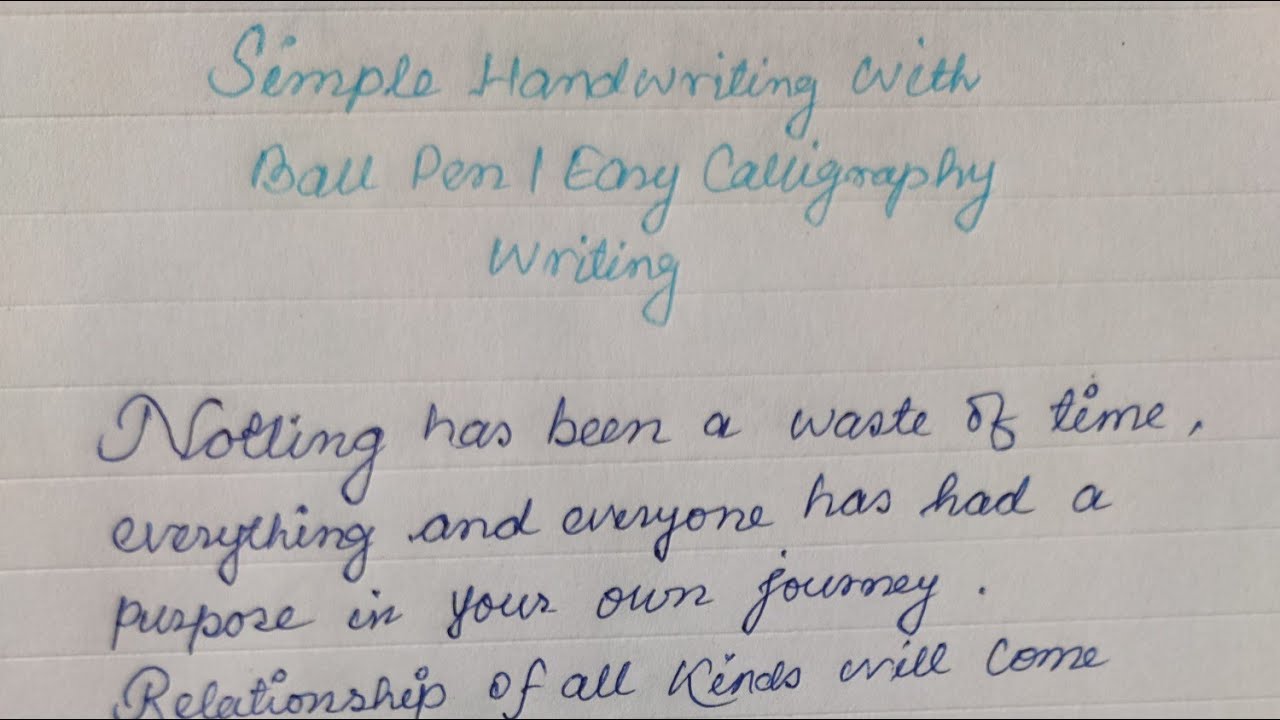 Simple Handwriting with
Ball Pen | Easy Calligraphy
Writing
Notling has been a waste of time,
everything and everyone has had a
purpose in your own journey.
Relationship of all kinds will come